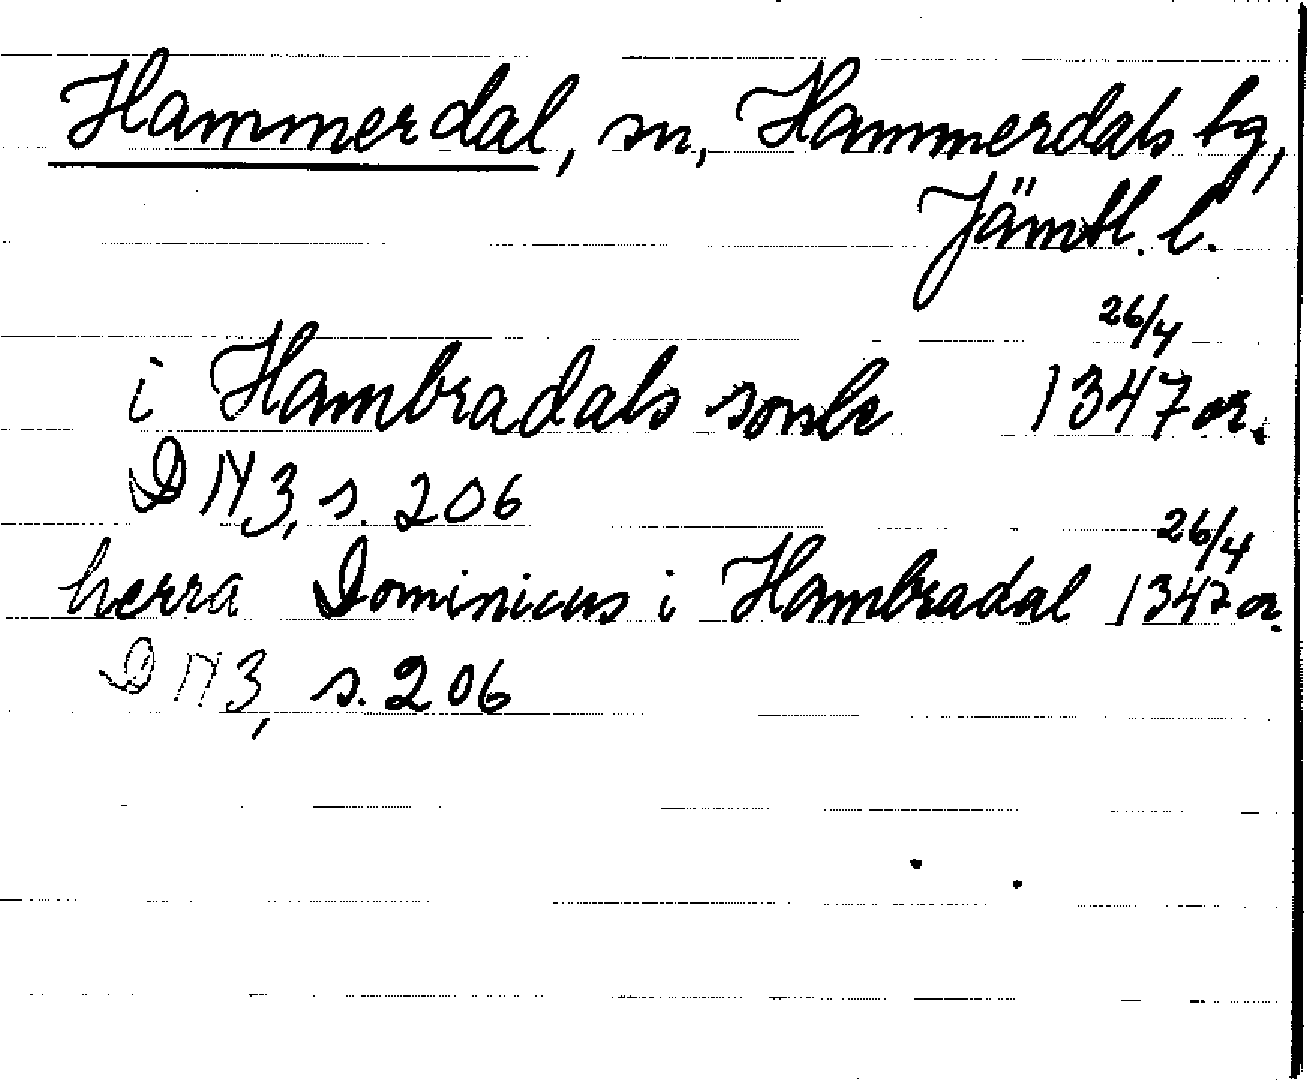 Hammerdal, sn, Hammerdals tg,
Jämtl. l.
i Hambradals sonk 26/4 1347 or.
DN 3, s. 206
herra Dominicus i Hambradal 26/4 1347 or.
DN 3, s. 206